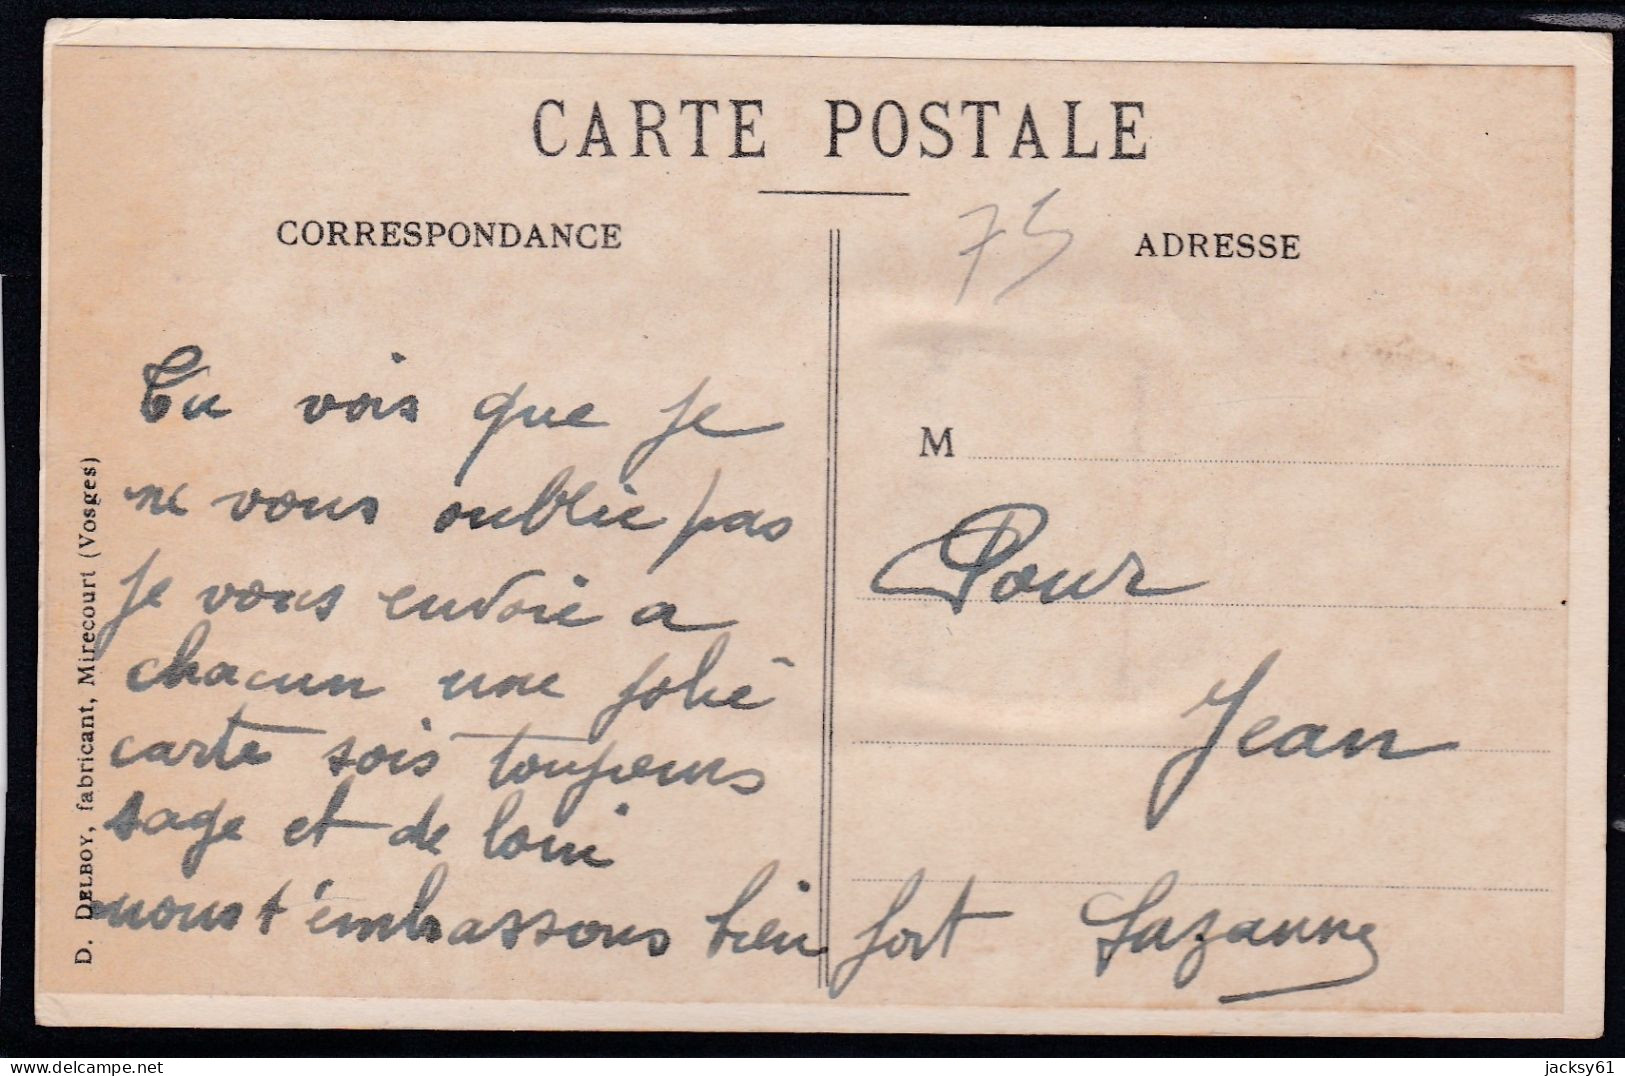 CARTE POSTALE
CORRESPONDANCE
75
ADRESSE
Tu vois que je
ne vous oublie pas
je vous envoie a
chacun une jolie
carte sois toujours
sage et de loin
nous t'embrassons bien fort Suzanne
M
Pour
Jean
D. DELBOY, fabricant, Mirecourt (Vosges)
delcampe.net
jacksy61